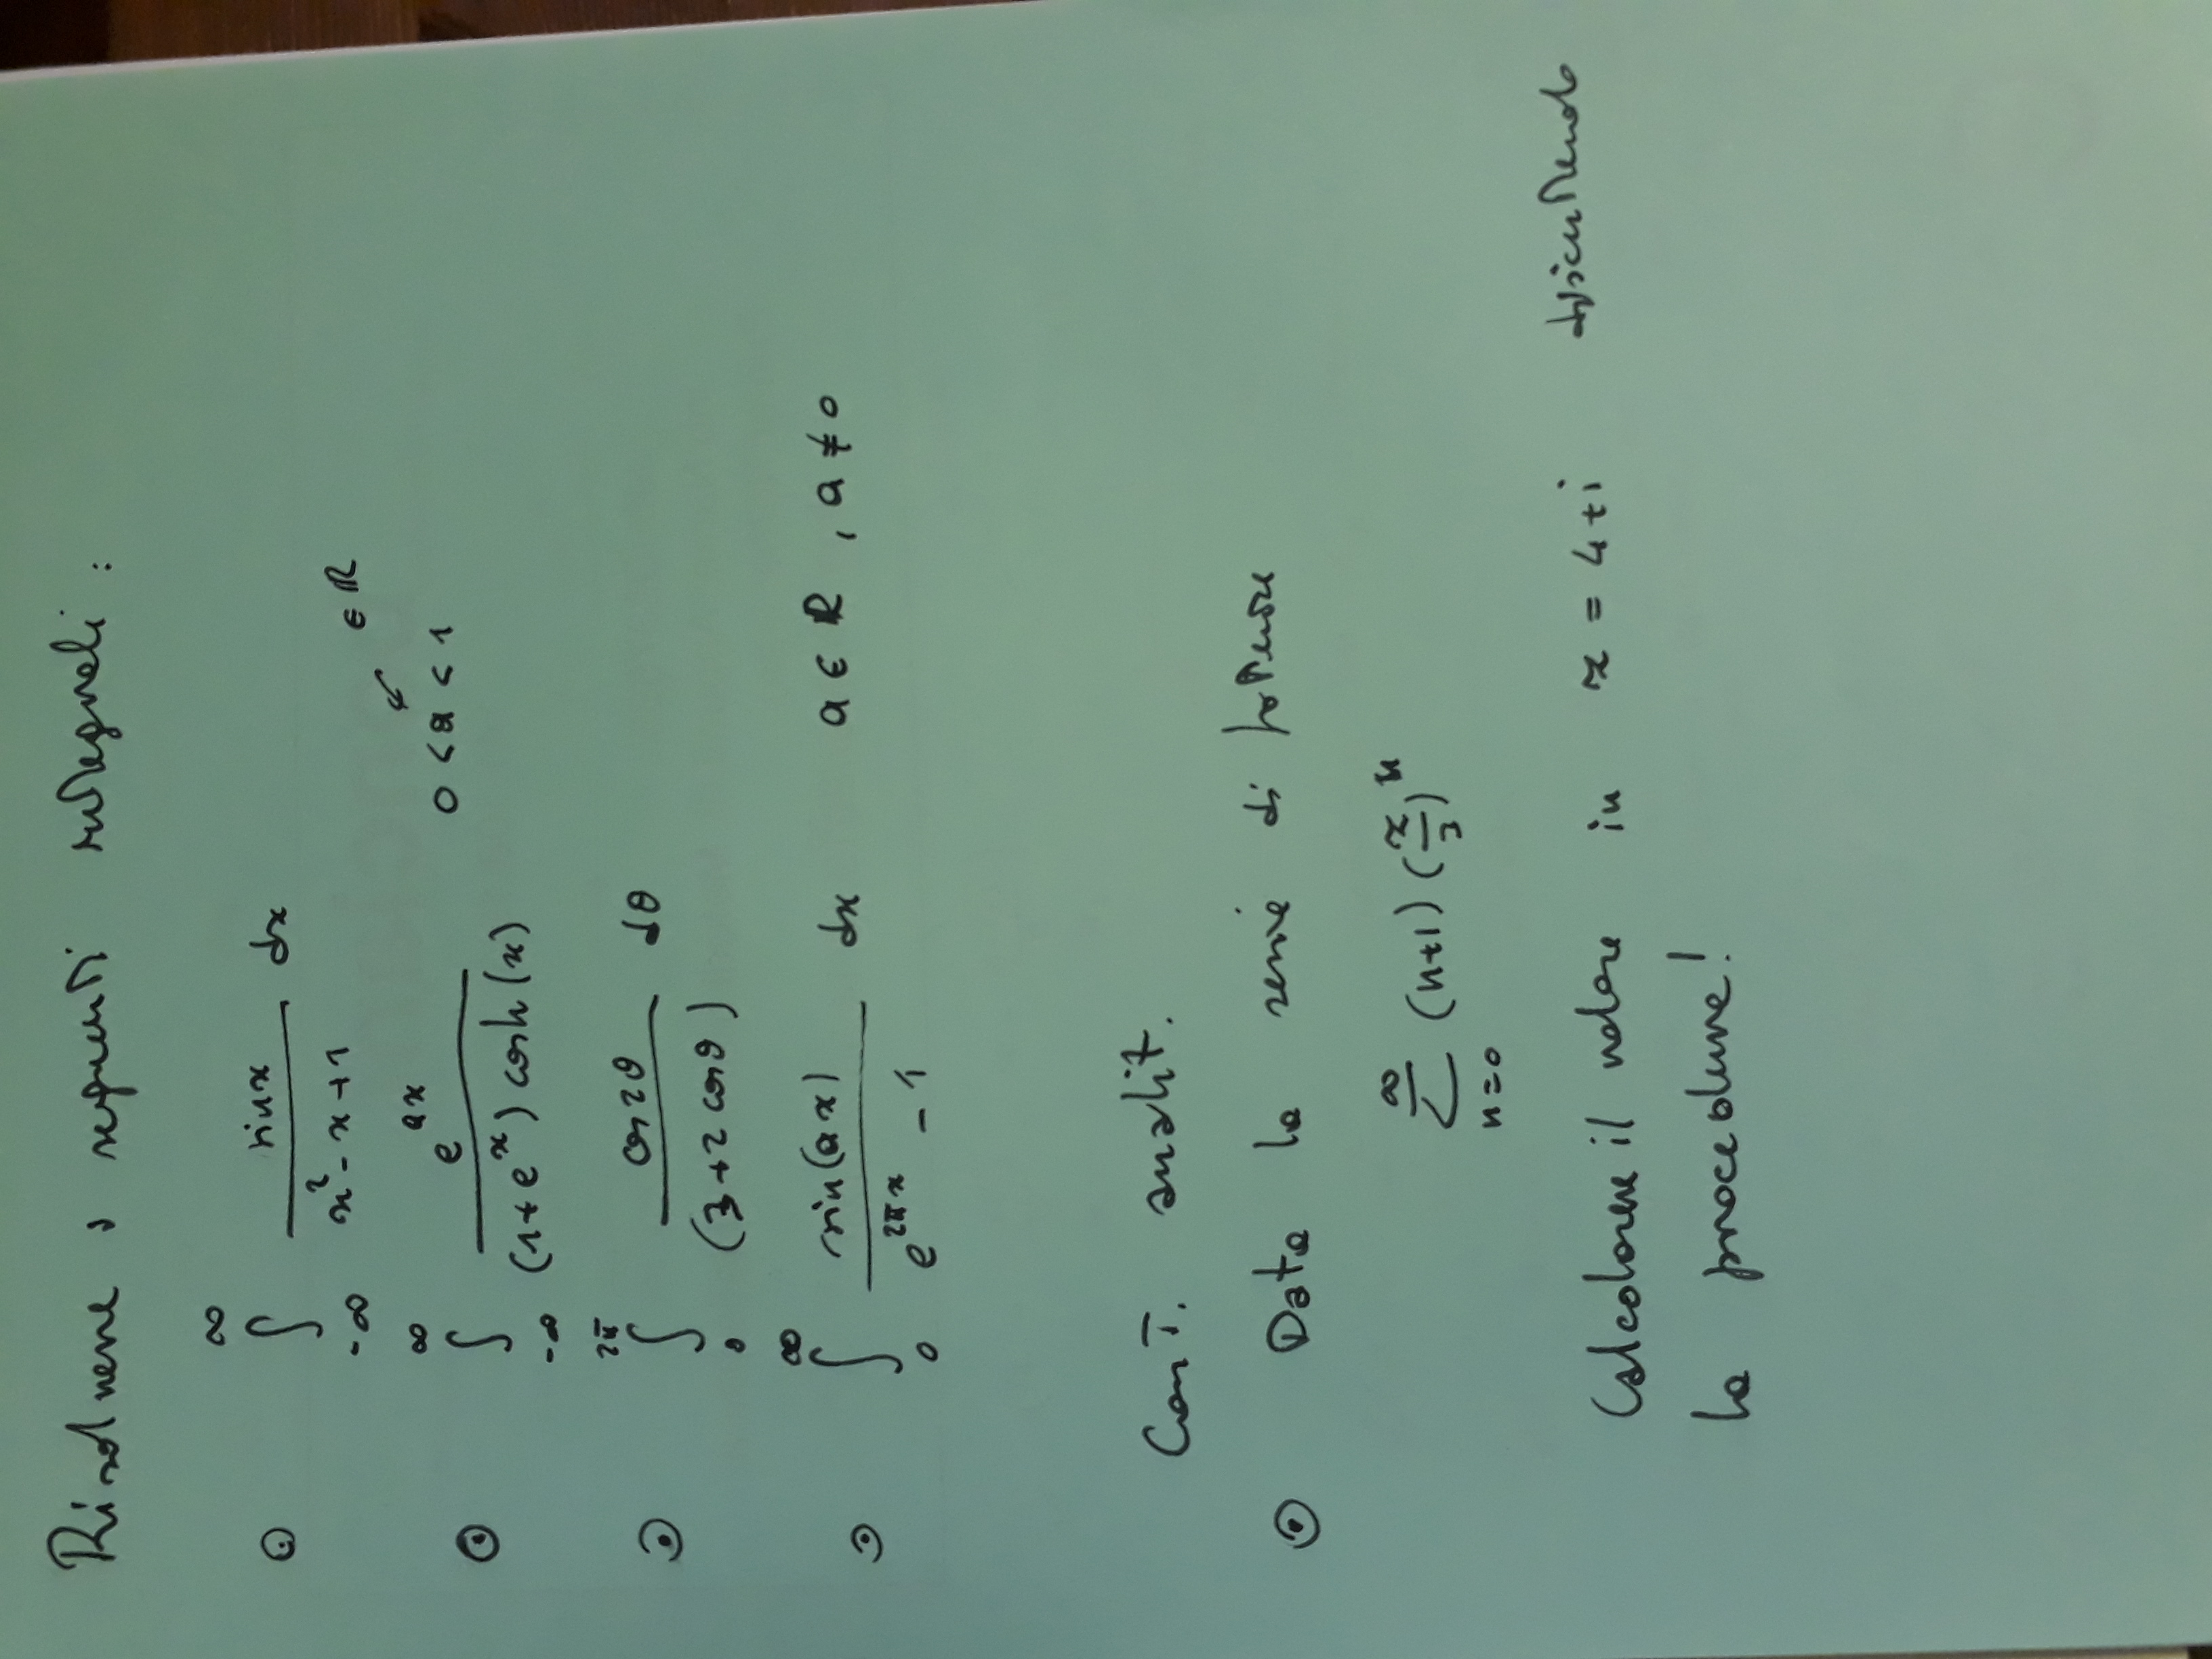 Risolvere i seguenti integrali:
⊙ ∫_{-∞}^{∞} sinx / (x² - x + 1) dx
⊙ ∫_{-∞}^{∞} e^{ax} / ((1+e^x) cosh(x)) 0 < a < 1 ∈ ℝ
⊙ ∫_0^{2π} cos2θ / (3+2cosθ) dθ
⊙ ∫_0^∞ sin(ax) / (e^{2πx} - 1) dx a ∈ ℝ, a ≠ 0
Cont. analit.
⊙ Data la serie di potenze
∑_{n=0}^∞ (n+1) (z/2)^n
Calcolare il valore in z = 4+i giustificando
la procedura!